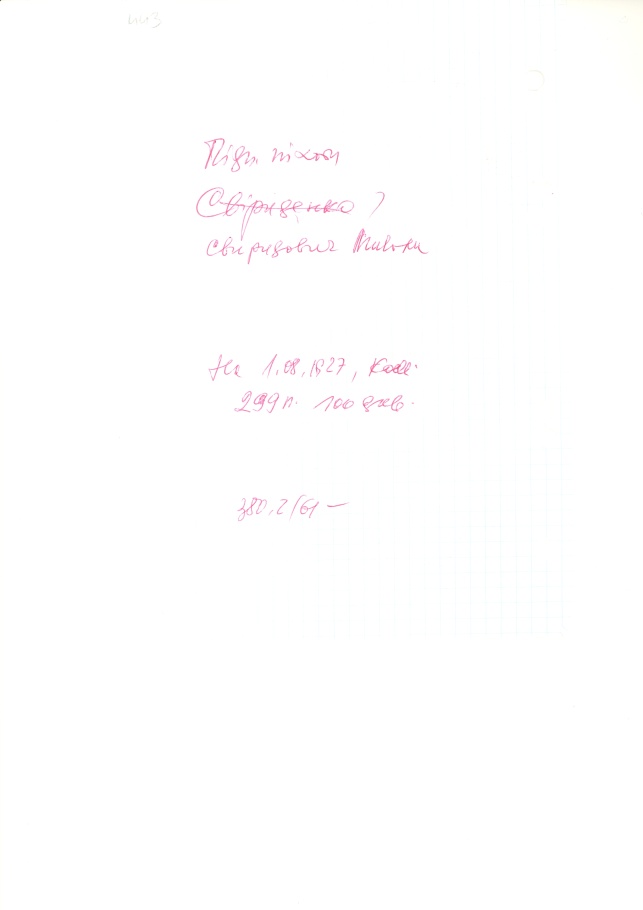 443
Підп. піхоти
Свіриденко ?
Свиридович Микола
На 1.08.1927, Каліш
299 п. 100 
380.2/61 —